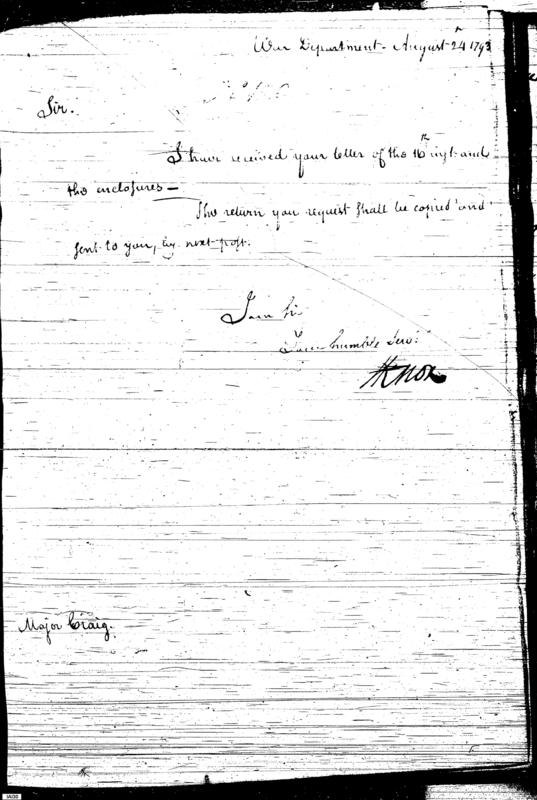 War Department - August 24 1793
Sir.
I have received your letter of the 16th inst. and
the enclosures —
The return you request shall be copied and
sent to you, by next post.
I am Sir
Your humble Serv.t
HKnox
Major Craig.